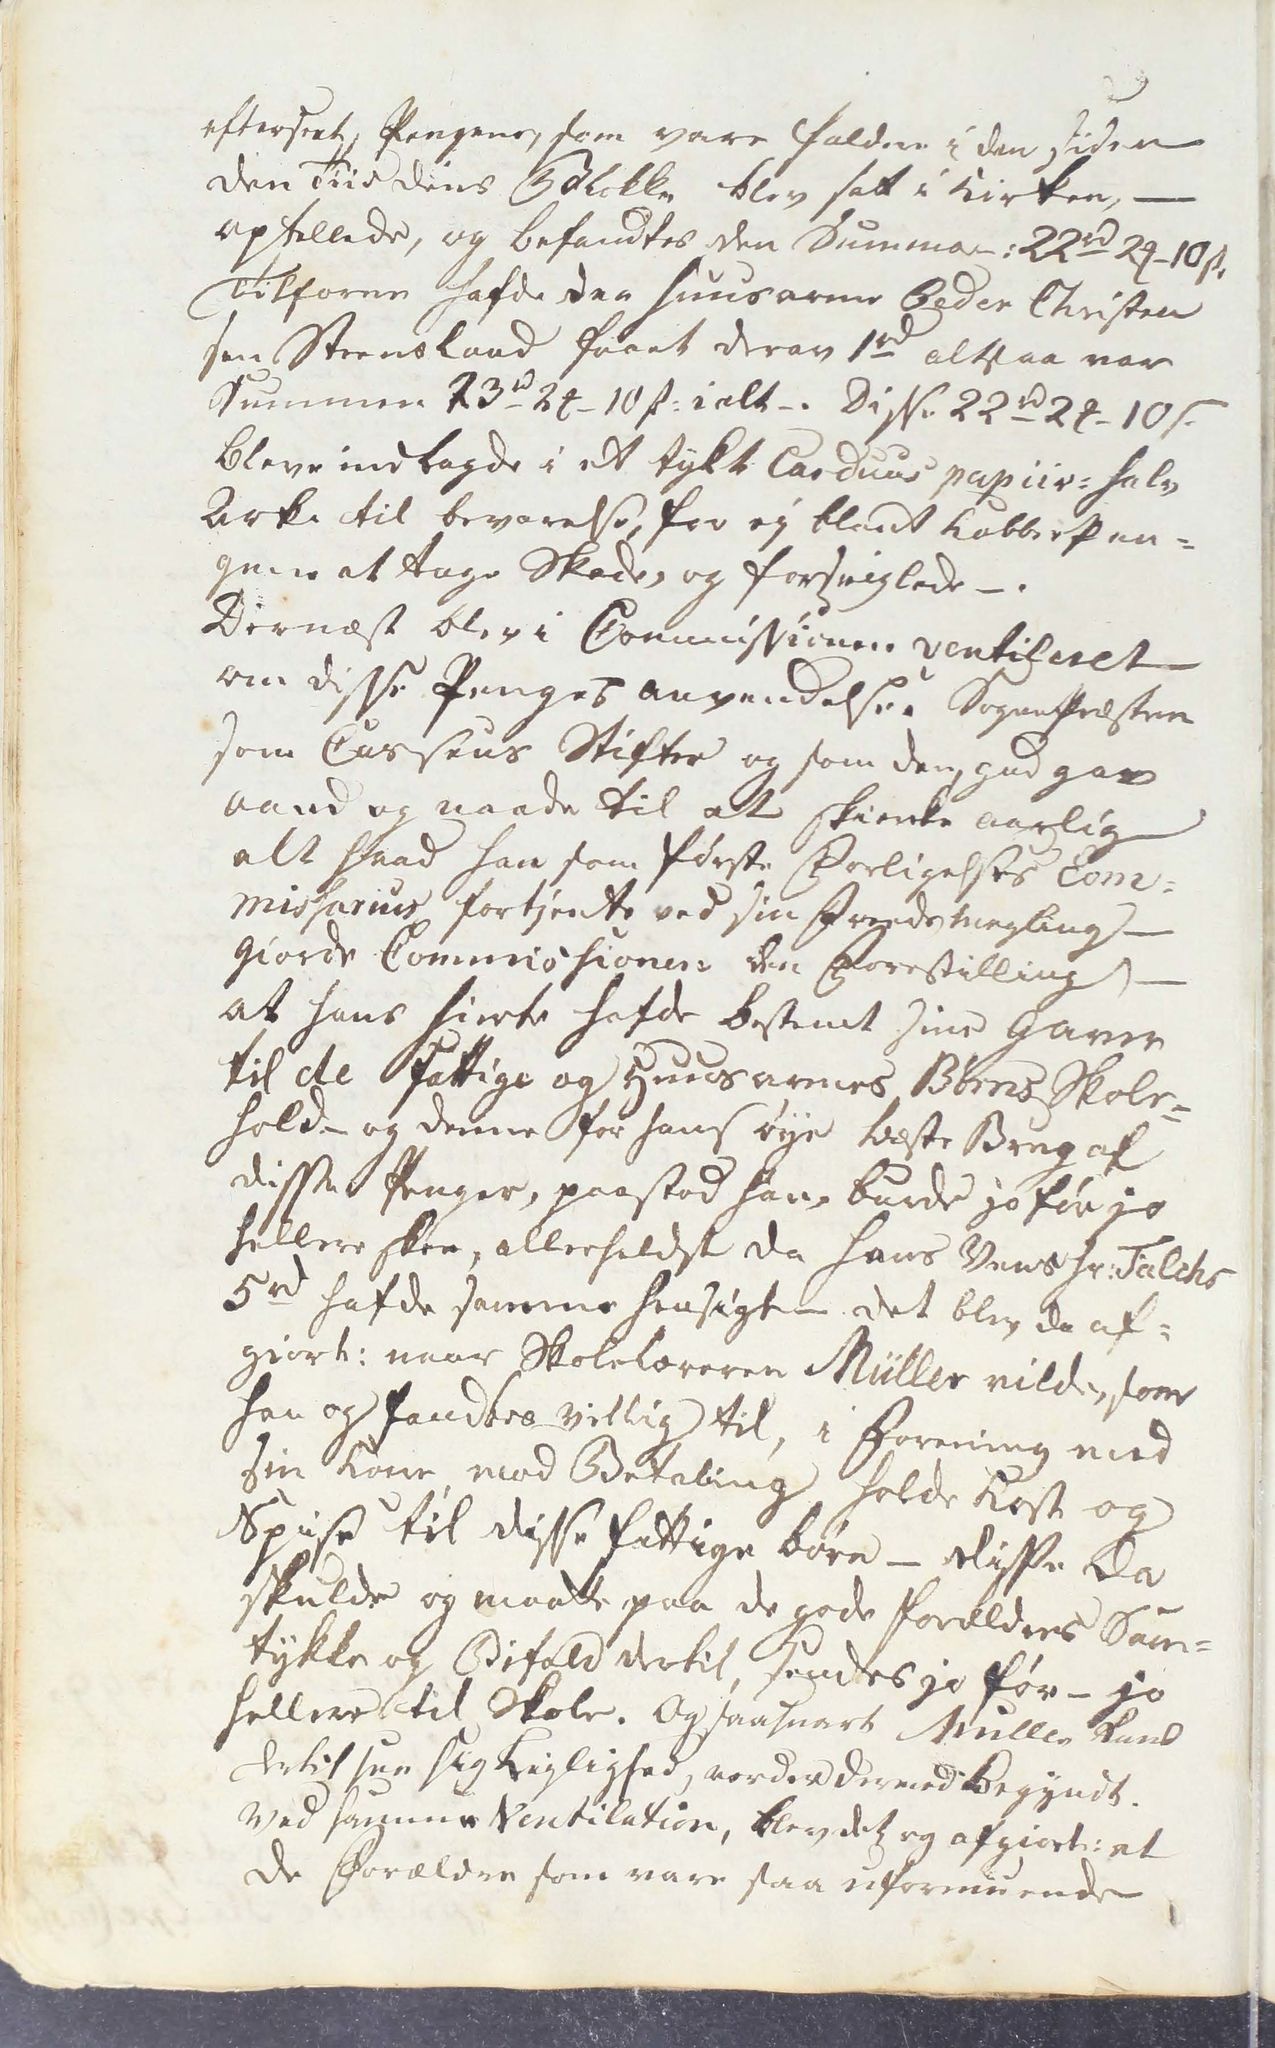 efterseet, Pengene, som vare faldne i den siden
den Tiid dens Blokke blev satt i Kirken, —
optellede, og befandtes den Summa: 22rd 2₰ - 10 ß.
Tilforne hafde den huusarme Peder Christen
sen Steensland faaet derav 1rd altsaa var
Summen 23rd 2₰ - 10 ß: ialt -. Disse 22rd 2₰ - 10 ß
bleve indlagde i et tykt Carduus papiir = halv
Arke til bevarelse, for ey blant Kobberpen=
gene at tage Skade, og forseiglede -.
Dernæst blev i Commissionen ventileret
om disse Penges anvendelse. Sognepræsten
som Cassens Stifter og som den, gud gav
aand og naade til at skienke aarlig
alt hvad han som første Forligelses Com=
missarius fortjente ved sin Freds megling —
giorde Commissionen den Forestilling, —
at hans hierte hafde bestemt sine Gaver
til de Fattige og Huusarmes Børns Skole=
hold - og denne for hans øye beste Brug af
disse Penger, paastod han, burde jo før jo
hellere skee, allerheldst da hans Vens hr: Falchs
5rd hafde samme hensigt - det blev da af=
giort: naar Skolelæreren Müller vilde, som
han og fandtes villig til, i Forening med
sin Kone, mod Betaling holde Kost og
Spise til disse fattige børn - disse da
skulde og maatte paa de gode forældres Sam=
tykke og Bifald dertil, sendes jo før - jo
hellere til Skole. Og saasnart Müller kand
dertil see sig Leylighed, vorder dermed Begyndt.
Ved samme Ventilation, blev det og afgiort: at
de Forældre som vare saa uformuende